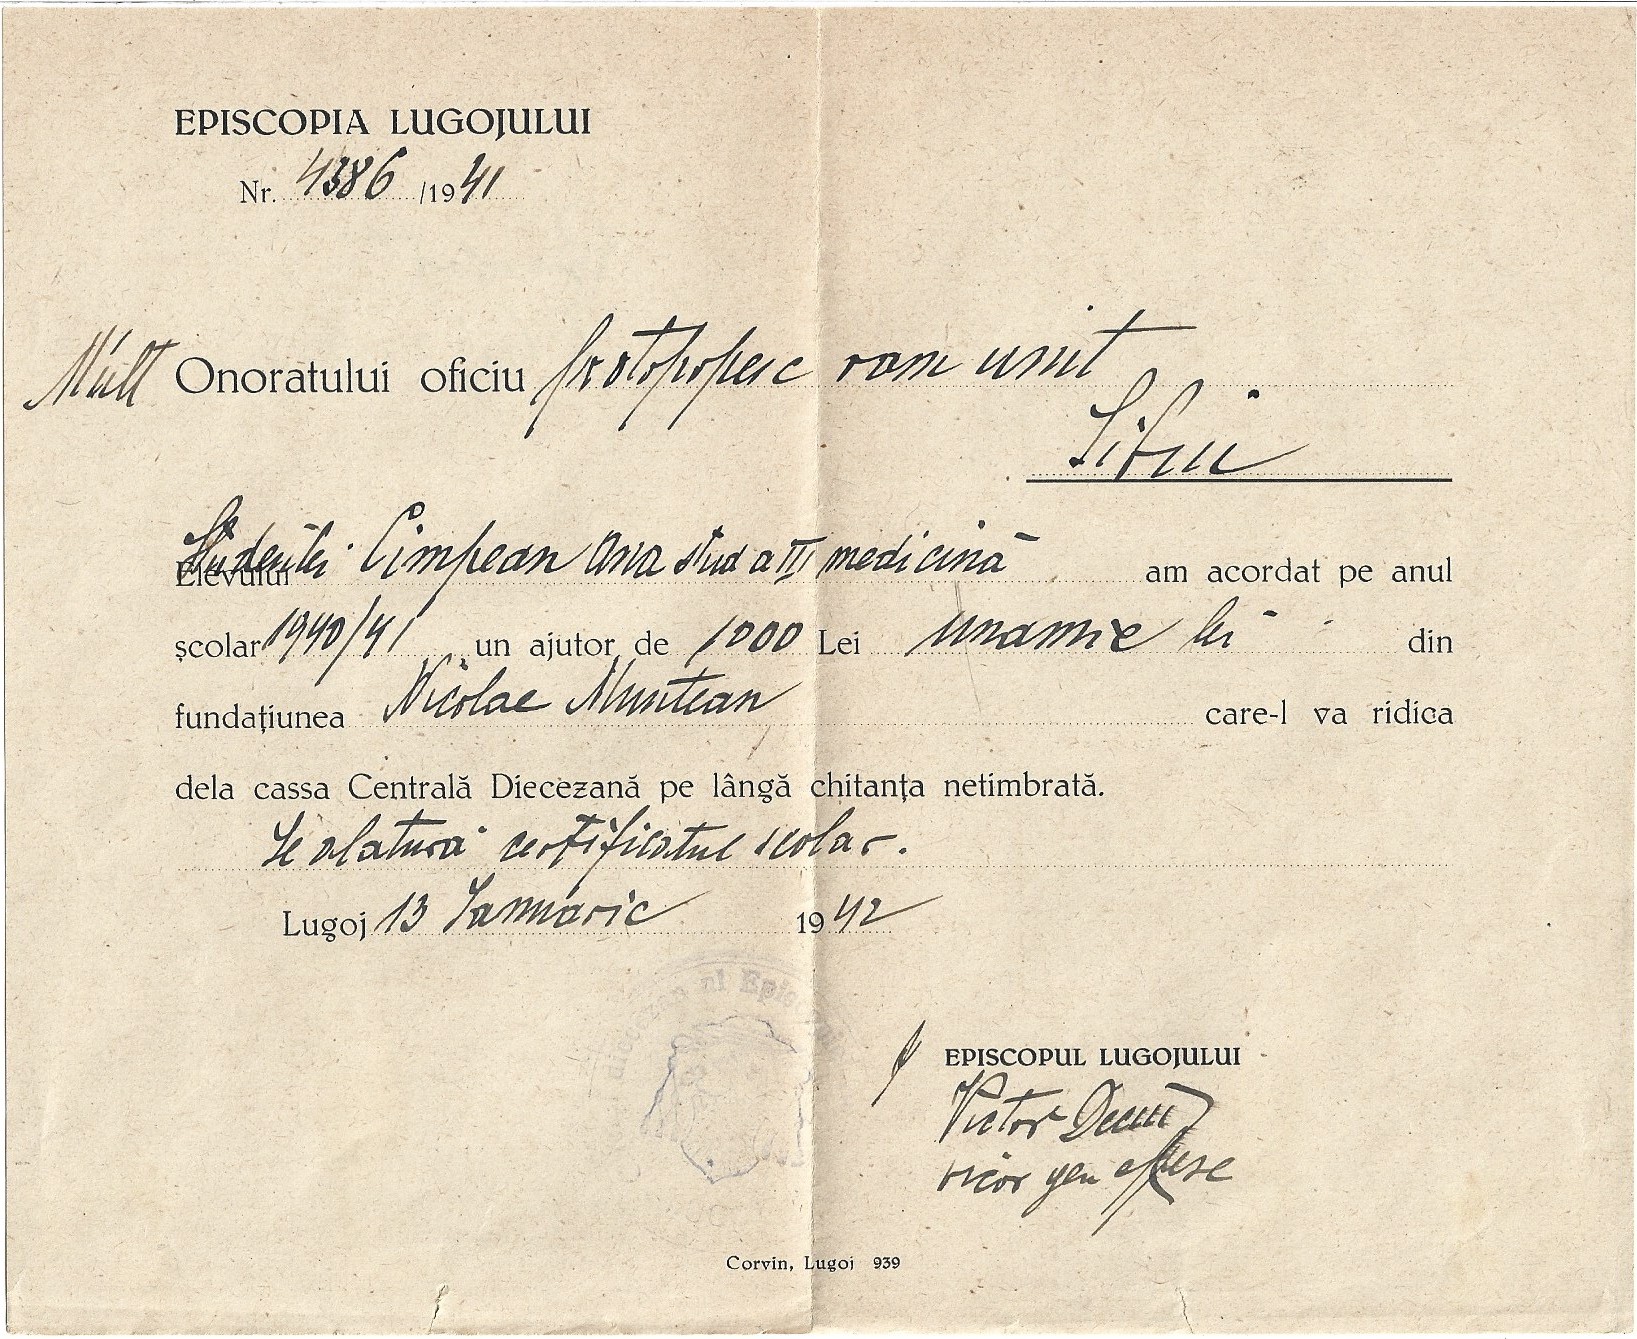 EPISCOPIA LUGOJULUI
Nr. 4386 /1941
Mult Onoratului oficiu protopopesc rom unit
Sibiu
Elevului Studentei Cimpean Ana stud a III medicină am acordat pe anul
școlar 1940/41 un ajutor de 1000 Lei unamie lei din
fundațiunea Nicolae Muntean care-l va ridica
dela cassa Centrală Diecezană pe lângă chitanța netimbrată.
Se alatură certificatul scolar.
Lugoj 13 Ianuarie 1942
EPISCOPUL LUGOJULUI
Victor
vicar gen epesc
Corvin, Lugoj 939